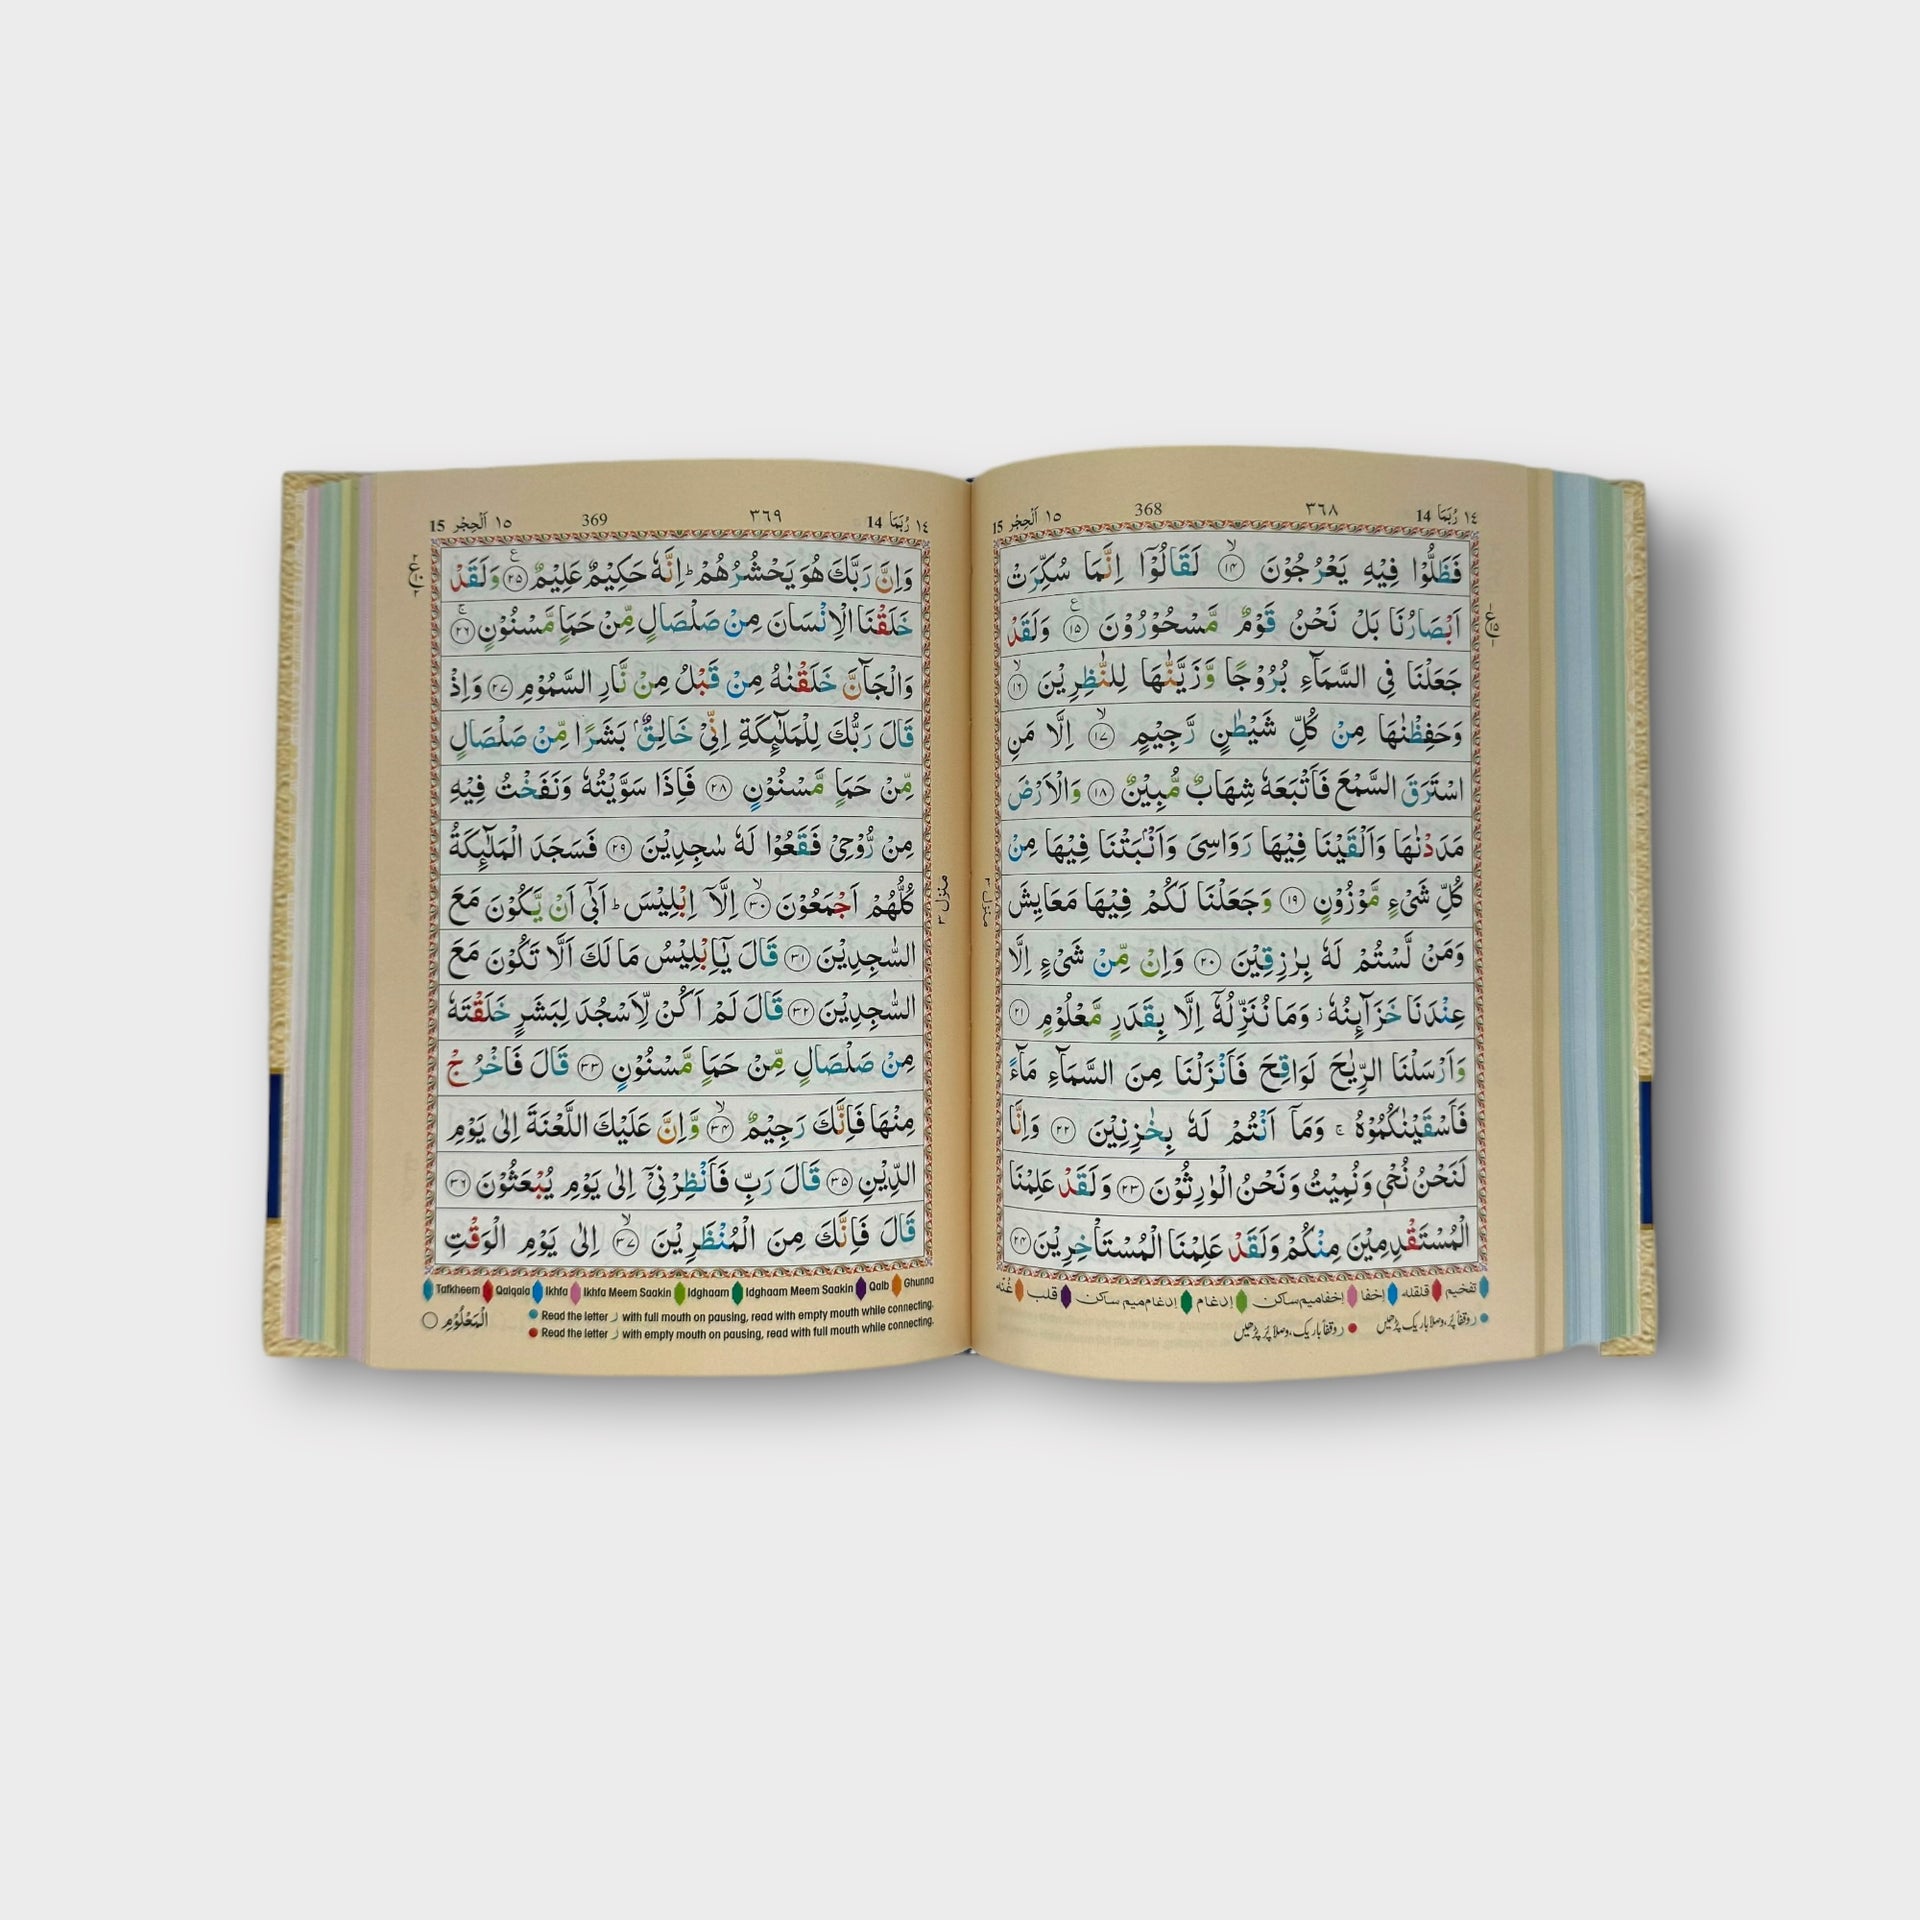 ١٤ رُبَمَا 14
٣٦٨
368
١٥ اَلْحِجْر 15
فَظَلُّوْا فِيْهِ يَعْرُجُوْنَ ۙ﴿۱۴﴾ لَقَالُوْۤا اِنَّمَا سُكِّرَتْ
اَبْصَارُنَا بَلْ نَحْنُ قَوْمٌ مَّسْحُوْرُوْنَ ﴿۱۵﴾ وَلَقَدْ
جَعَلْنَا فِي السَّمَآءِ بُرُوْجًا وَّزَيَّنّٰهَا لِلنّٰظِرِيْنَ ۙ﴿۱۶﴾
وَحَفِظْنٰهَا مِنْ كُلِّ شَيْطٰنٍ رَّجِيْمٍ ۙ﴿۱۷﴾ اِلَّا مَنِ
اسْتَرَقَ السَّمْعَ فَاَتْبَعَهٗ شِهَابٌ مُّبِيْنٌ ﴿۱۸﴾ وَالْاَرْضَ
مَدَدْنٰهَا وَاَلْقَيْنَا فِيْهَا رَوَاسِيَ وَاَنْۢبَتْنَا فِيْهَا مِنْ
كُلِّ شَيْءٍ مَّوْزُوْنٍ ﴿۱۹﴾ وَجَعَلْنَا لَكُمْ فِيْهَا مَعَايِشَ
وَمَنْ لَّسْتُمْ لَهٗ بِرٰزِقِيْنَ ﴿۲۰﴾ وَاِنْ مِّنْ شَيْءٍ اِلَّا
عِنْدَنَا خَزَآئِنُهٗ ؗ وَمَا نُنَزِّلُهٗۤ اِلَّا بِقَدَرٍ مَّعْلُوْمٍ ﴿۲۱﴾
وَاَرْسَلْنَا الرِّيٰحَ لَوَاقِحَ فَاَنْزَلْنَا مِنَ السَّمَآءِ مَآءً
فَاَسْقَيْنٰكُمُوْهُ ۚ وَمَاۤ اَنْتُمْ لَهٗ بِخٰزِنِيْنَ ﴿۲۲﴾ وَاِنَّا
لَنَحْنُ نُحْيٖ وَنُمِيْتُ وَنَحْنُ الْوٰرِثُوْنَ ﴿۲۳﴾ وَلَقَدْ عَلِمْنَا
الْمُسْتَقْدِمِيْنَ مِنْكُمْ وَلَقَدْ عَلِمْنَا الْمُسْتَاْخِرِيْنَ ﴿۲۴﴾
منزل ۳
تفخیم قلقلہ إخفا إخفا میم ساکن إدغام إدغام میم ساکن قلب غُنّہ
ر وقفاً پُر، وصلاً باریک پڑھیں
ر وقفاً باریک، وصلاً پُر پڑھیں
١٤ رُبَمَا 14
٣٦٩
369
١٥ اَلْحِجْر 15
وَاِنَّ رَبَّكَ هُوَ يَحْشُرُهُمْ ؕ اِنَّهٗ حَكِيْمٌ عَلِيْمٌ ﴿۲۵﴾ وَلَقَدْ
خَلَقْنَا الْاِنْسَانَ مِنْ صَلْصَالٍ مِّنْ حَمَاٍ مَّسْنُوْنٍ ۚ﴿۲۶﴾
وَالْجَآنَّ خَلَقْنٰهُ مِنْ قَبْلُ مِنْ نَّارِ السَّمُوْمِ ﴿۲۷﴾ وَاِذْ
قَالَ رَبُّكَ لِلْمَلٰٓئِكَةِ اِنِّيْ خَالِقٌۢ بَشَرًا مِّنْ صَلْصَالٍ
مِّنْ حَمَاٍ مَّسْنُوْنٍ ﴿۲۸﴾ فَاِذَا سَوَّيْتُهٗ وَنَفَخْتُ فِيْهِ
مِنْ رُّوْحِيْ فَقَعُوْا لَهٗ سٰجِدِيْنَ ﴿۲۹﴾ فَسَجَدَ الْمَلٰٓئِكَةُ
كُلُّهُمْ اَجْمَعُوْنَ ۙ﴿۳۰﴾ اِلَّاۤ اِبْلِيْسَ ؕ اَبٰۤى اَنْ يَّكُوْنَ مَعَ
السّٰجِدِيْنَ ﴿۳۱﴾ قَالَ يٰۤاِبْلِيْسُ مَا لَكَ اَلَّا تَكُوْنَ مَعَ
السّٰجِدِيْنَ ﴿۳۲﴾ قَالَ لَمْ اَكُنْ لِّاَسْجُدَ لِبَشَرٍ خَلَقْتَهٗ
مِنْ صَلْصَالٍ مِّنْ حَمَاٍ مَّسْنُوْنٍ ﴿۳۳﴾ قَالَ فَاخْرُجْ
مِنْهَا فَاِنَّكَ رَجِيْمٌ ۙ﴿۳۴﴾ وَّاِنَّ عَلَيْكَ اللَّعْنَةَ اِلٰى يَوْمِ
الدِّيْنِ ﴿۳۵﴾ قَالَ رَبِّ فَاَنْظِرْنِيْۤ اِلٰى يَوْمِ يُبْعَثُوْنَ ﴿۳۶﴾
قَالَ فَاِنَّكَ مِنَ الْمُنْظَرِيْنَ ۙ﴿۳۷﴾ اِلٰى يَوْمِ الْوَقْتِ
منزل ۳
Tafkheem Qalqala Ikhfa Ikhfa Meem Saakin Idghaam Idghaam Meem Saakin Qalb Ghunna
Read the letter ر with full mouth on pausing, read with empty mouth while connecting.
Read the letter ر with empty mouth on pausing, read with full mouth while connecting.
الْمَعْلُوْمِ